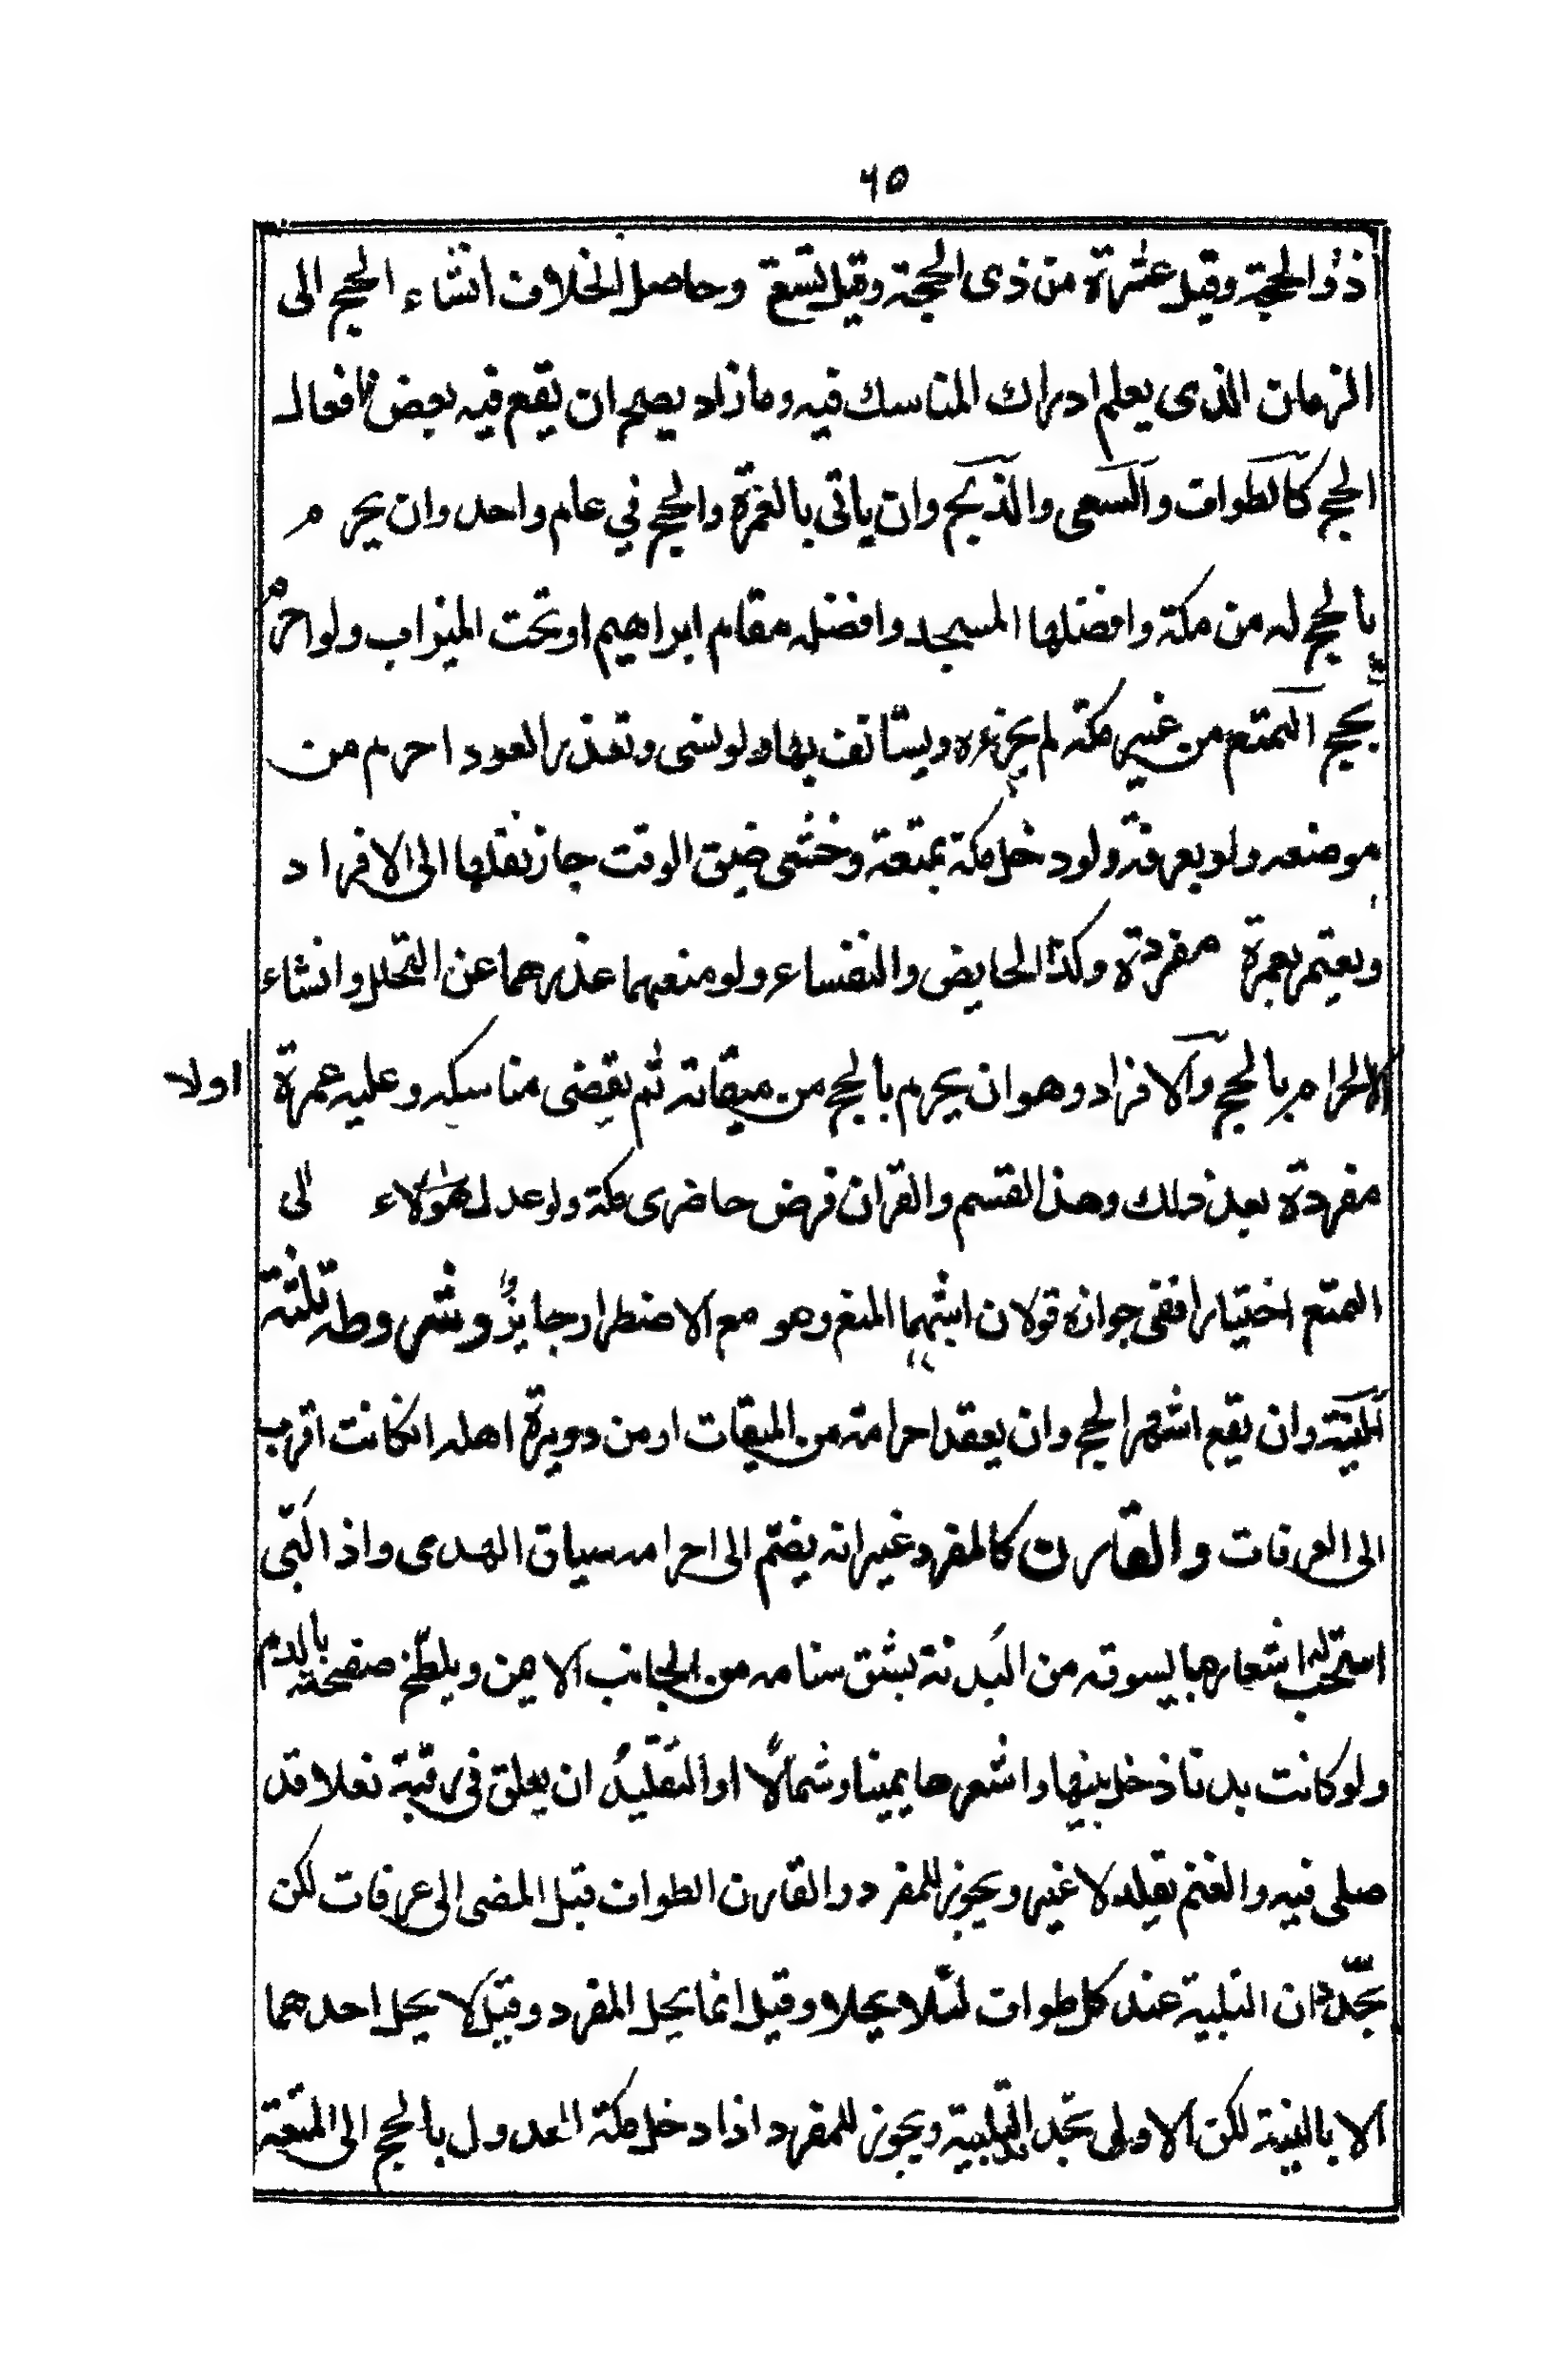 ٦٥
ذو الحجة وقيل عشرة من ذى الحجة وقيل تسع وحاصل الخلاف انشاء الحج الى
الزمان الذى يعلم ادراك المناسك فيه وما زاد يصح ان يقع فيه بعض افعال
الحج كالطواف والسعى والذبح وان ياتى بالعمرة والحج في عام واحد وان يحرم
بالحج له من مكة وافضلها المسجد وافضله مقام ابراهيم او تحت الميزاب ولو احرم
بحج التمتع من غير مكة لم يجزءه ويستانف بها ولو نسى وتعذر العود احرم من
موضعه ولو بعرفة ولو دخل مكة بمتعة وخشى ضيق الوقت جاز نقلها الى الافراد
ويعتمر بعمرة مفردة وكذا الحايض والنفساء ولو منعهما عذرهما عن التحلل وانشاء
الاحرام بالحج والافراد وهو ان يحرم بالحج من ميقاته ثم يقضى مناسكه وعليه عمرة
اولا
مفردة بعد ذلك وهذا القسم والقران فرض حاضرى مكة ولو عدل هؤلاء الى
التمتع اختيارا ففى جوازه قولان اشبهما المنع وهو مع الاضطرار جايز وشروطه ثلثة
النية وان يقع اشهر الحج وان يعقد احرامه من الميقات او من دويرة اهله ان كانت اقرب
الى العرفات والقارن كالمفرد غير انه يضم الى احرامه سياق الهدى واذا لبى
استحب له اشعار ما يسوقه من البدنة بشق سنامه من الجانب الايمن ويلطخ صفحته بالدم
ولو كانت بدنا دخل بينها واشعرها يمينا وشمالا او التقليد ان يعلق فى رقبة نعلا قد
صلى فيه والغنم تقلد لا غير ويجوز للمفرد والقارن الطواف قبل المضى الى عرفات لكن
يجددان التلبية عند كل طواف لئلا يحلا وقيل انما يحل المفرد وقيل لا يحل احدهما
الا بالنية لكن الاولى تجديد التلبية ويجوز للمفرد اذا دخل مكة العدول بالحج الى المتعة